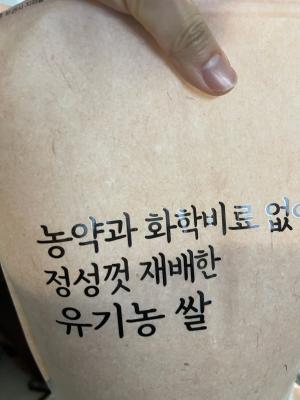 농약과 화학비료 없이
정성껏 재배한
유기농 쌀